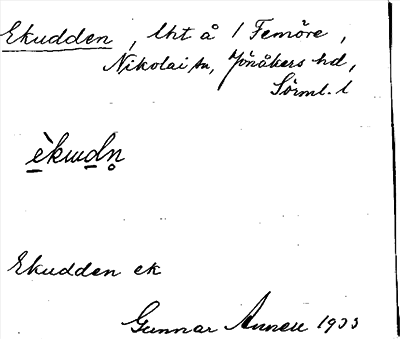 Ekudden, lht å 1 Femöre,
Nikolai sn, Jönåkers hd,
Sörml. l
èkɯdn̥
Ekudden ek
Gunnar 1933